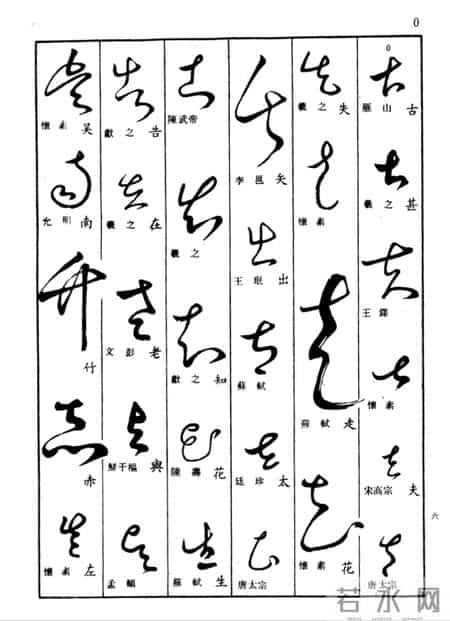 0
0
山 古
羲之 甚
王鐸
懷素
宋高宗 夫
唐太宗
羲之 失
懷素
蘇軾 走
懷素 花
李邕 矢
王珉 出
蘇軾
廷珍 太
唐太宗
陳武帝
羲之
獻之 知
陳壽 花
蘇軾 生
獻之 告
羲之 在
文彭 老
鮮于 與
孟頫
懷素 吳
允明 南
竹
赤
懷素 左
六
若水网